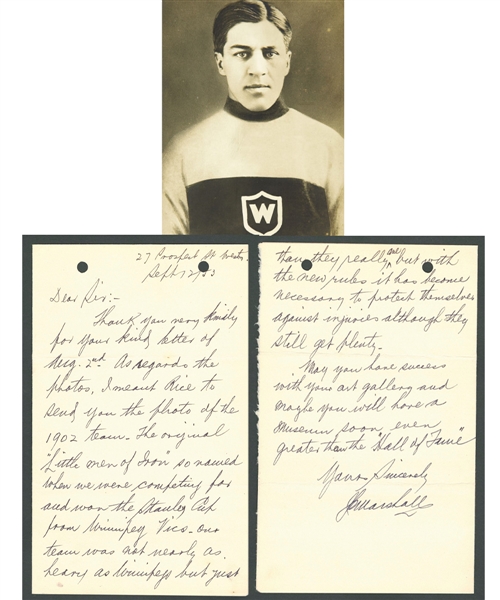 W
27 Prospect St. Westm.
Sept 12/53
Dear Sir:-
Thank you very kindly
for your kind letter of
Aug. 2nd. As regards the
photos, I meant Rice to
send you the photo of the
1902 team. The original
"Little men of Iron" so named
when we were competing for
and won the Stanley Cup
from Winnipeg Vics - our
team was not nearly as
heavy as Winnipegs but just
than they really are but with
the new rules it has become
necessary to protect themselves
against injuries although they
still get plenty -
May you have success
with your art gallery and
maybe you will have a
museum soon, even
greater than the "Hall of Fame"
Yours Sincerely
J Marshall